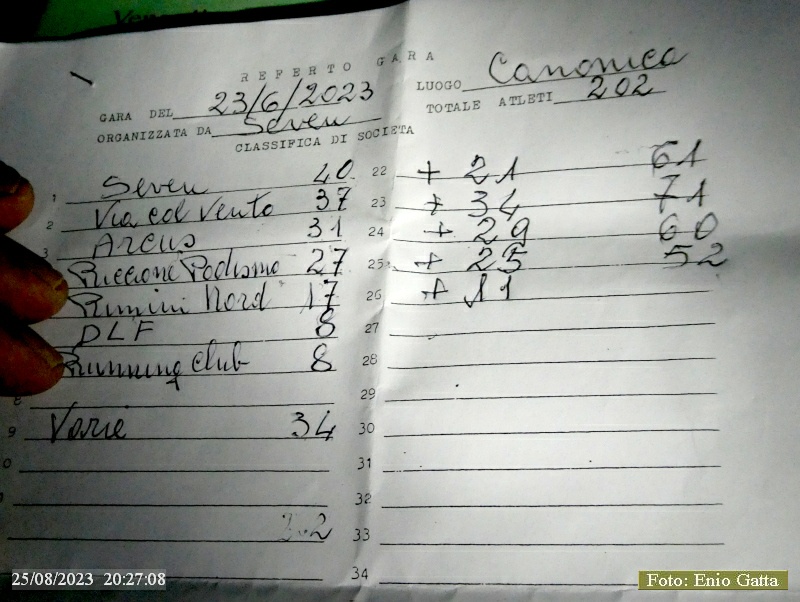 REFERTO GARA
GARA DEL 23/6/2023 LUOGO Canonica
ORGANIZZATA DA Seven TOTALE ATLETI 202
CLASSIFICA DI SOCIETA
1 Seven 40
2 Via col Vento 37
3 Arcus 31
Riccione Podismo 27
Rimini Nord 17
DLF 8
Running club 8
8
9 Varie 34
0
22 + 21 61
23 + 34 71
24 + 29 60
25 + 25 52
26 + 11
27
28
29
30
31
32
33
34
25/08/2023 20:27:08
Foto: Enio Gatta